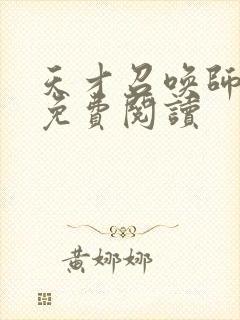 天才召唤師
免費閱讀
黃娜娜